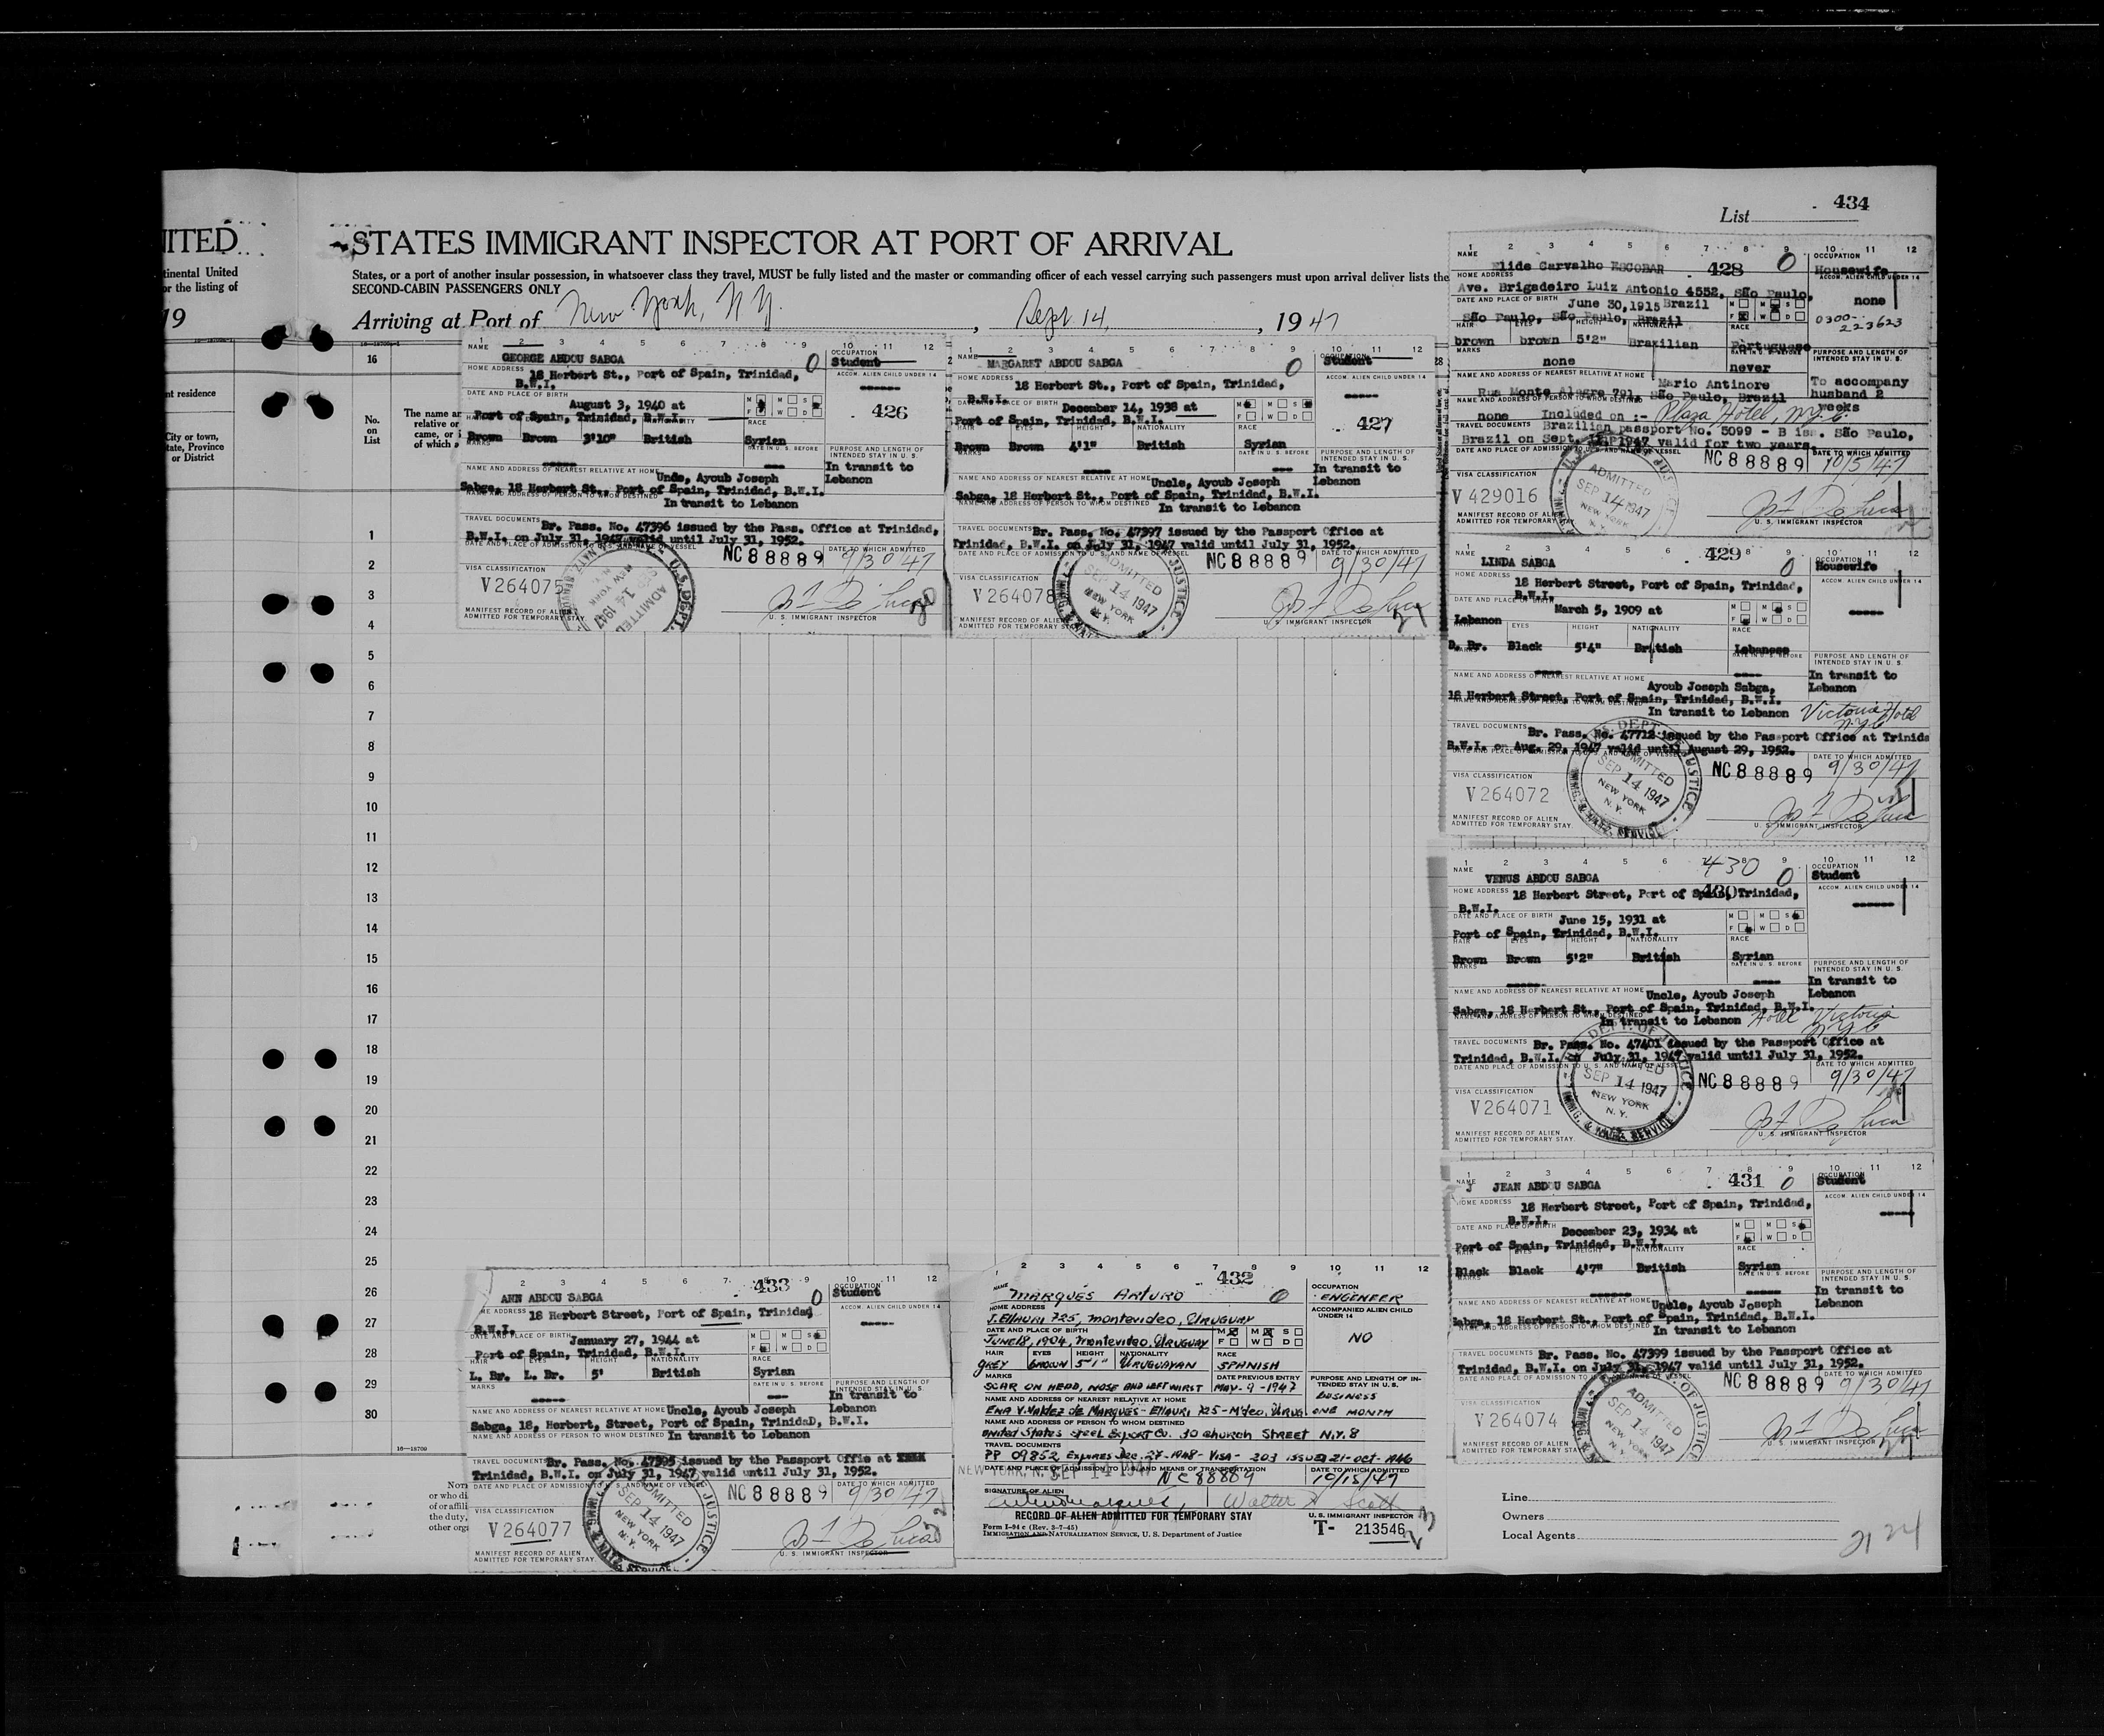 List 434
ITED STATES IMMIGRANT INSPECTOR AT PORT OF ARRIVAL
tinental United
or the listing of
19
States, or a port of another insular possession, in whatsoever class they travel, MUST be fully listed and the master or commanding officer of each vessel carrying such passengers must upon arrival deliver lists the
SECOND-CABIN PASSENGERS ONLY
Arriving at Port of New York, N.Y., Sept 14, 1947
nt residence
City or town,
State, Province
or District
16
No.
on
List
The name ar
relative or
came, or i
of which a
1
2
3
4
5
6
7
8
9
10
11
12
13
14
15
16
17
18
19
20
21
22
23
24
25
26
27
28
29
30
16—18700
1 2 3 4 5 6 7 8 9 10 11 12
NAME
GEORGE ABDOU SABGA 0
OCCUPATION
Student
HOME ADDRESS
18 Herbert St., Port of Spain, Trinidad,
B.W.I.
ACCOM. ALIEN CHILD UNDER 14
426
DATE AND PLACE OF BIRTH
August 3, 1940 at
Port of Spain, Trinidad, B.W.I.
M M S
F W D
HAIR EYES HEIGHT NATIONALITY RACE
Brown Brown 3'10" British Syrian
MARKS
DATE IN U. S. BEFORE
PURPOSE AND LENGTH OF
INTENDED STAY IN U. S.
In transit to
Lebanon
NAME AND ADDRESS OF NEAREST RELATIVE AT HOME Uncle, Ayoub Joseph
Sabga, 18 Herbert St., Port of Spain, Trinidad, B.W.I.
NAME AND ADDRESS OF PERSON TO WHOM DESTINED
In transit to Lebanon
TRAVEL DOCUMENTS Br. Pass. No. 47396 issued by the Pass. Office at Trinidad,
B.W.I. on July 31, 1947 valid until July 31, 1952.
DATE AND PLACE OF ADMISSION TO U. S. AND NAME OF VESSEL
NC 88889
DATE TO WHICH ADMITTED
9/30/47
VISA CLASSIFICATION
V264075
MANIFEST RECORD OF ALIEN
ADMITTED FOR TEMPORARY STAY.
U.S. DEPT.
ADMITTED
SEP 14 1947
NEW YORK
N.Y.
U. S. IMMIGRANT INSPECTOR
1 2 3 4 5 6 7 8 9 10 11 12
NAME
MARGARET ABDOU SABGA 0
OCCUPATION
Student
HOME ADDRESS
18 Herbert St., Port of Spain, Trinidad,
B.W.I.
ACCOM. ALIEN CHILD UNDER 14
427
DATE AND PLACE OF BIRTH
December 14, 1938 at
Port of Spain, Trinidad, B.W.I.
M M S
F W D
HAIR EYES HEIGHT NATIONALITY RACE
Brown Brown 4'1" British Syrian
MARKS
DATE IN U. S. BEFORE
PURPOSE AND LENGTH OF
INTENDED STAY IN U. S.
In transit to
Lebanon
NAME AND ADDRESS OF NEAREST RELATIVE AT HOME Uncle, Ayoub Joseph
Sabga, 18 Herbert St., Port of Spain, Trinidad, B.W.I.
NAME AND ADDRESS OF PERSON TO WHOM DESTINED
In transit to Lebanon
TRAVEL DOCUMENTS Br. Pass. No. 47397 issued by the Passport Office at
Trinidad, B.W.I. on July 31, 1947 valid until July 31, 1952.
DATE AND PLACE OF ADMISSION TO U. S. AND NAME OF VESSEL
NC 88889
DATE TO WHICH ADMITTED
9/30/47
VISA CLASSIFICATION
V264078
MANIFEST RECORD OF ALIEN
ADMITTED FOR TEMPORARY STAY.
ADMITTED
SEP 14 1947
NEW YORK
N.Y.
U. S. IMMIGRANT INSPECTOR
1 2 3 4 5 6 7 8 9 10 11 12
NAME
Elide Carvalho ESCOBAR 428 0
OCCUPATION
Housewife
HOME ADDRESS
Ave. Brigadeiro Luiz Antonio 4552, São Paulo,
Brazil
ACCOM. ALIEN CHILD UNDER 14
none
DATE AND PLACE OF BIRTH June 30, 1915
São Paulo, São Paulo, Brazil
M M S
F W D
0300-
223623
HAIR EYES HEIGHT NATIONALITY RACE
brown brown 5'2" Brazilian Portuguese
MARKS
none
DATE IN U. S. BEFORE
never
PURPOSE AND LENGTH OF
INTENDED STAY IN U. S.
To accompany
husband 2
weeks
NAME AND ADDRESS OF NEAREST RELATIVE AT HOME Mario Antinore
Rua Monte Alegre 791, São Paulo, Brazil
NAME AND ADDRESS OF PERSON TO WHOM DESTINED
none Included on :- Plaza Hotel, NYC
TRAVEL DOCUMENTS Brazilian passport No. 5099 - B iss. São Paulo,
Brazil on Sept. 1947 valid for two years
DATE AND PLACE OF ADMISSION TO U. S. AND NAME OF VESSEL
NC 88889
DATE TO WHICH ADMITTED
10/5/47
VISA CLASSIFICATION
V429016
MANIFEST RECORD OF ALIEN
ADMITTED FOR TEMPORARY STAY.
ADMITTED
SEP 14 1947
NEW YORK
N.Y.
U. S. IMMIGRANT INSPECTOR
NAME
LINDA SABGA 429 0
OCCUPATION
Housewife
HOME ADDRESS
18 Herbert Street, Port of Spain, Trinidad,
B.W.I.
ACCOM. ALIEN CHILD UNDER 14
DATE AND PLACE OF BIRTH
March 5, 1909 at
Lebanon
M M S
F W D
HAIR EYES HEIGHT NATIONALITY RACE
D. Br. Black 5'4" British Lebanese
MARKS
DATE IN U. S. BEFORE
PURPOSE AND LENGTH OF
INTENDED STAY IN U. S.
In transit to
Lebanon
NAME AND ADDRESS OF NEAREST RELATIVE AT HOME
Ayoub Joseph Sabga,
18 Herbert Street, Port of Spain, Trinidad, B.W.I.
NAME AND ADDRESS OF PERSON TO WHOM DESTINED
In transit to Lebanon Victoria Hotel
NYC
TRAVEL DOCUMENTS Br. Pass. No. 47712 issued by the Passport Office at Trinida
B.W.I. on Aug. 29, 1947 valid until August 29, 1952.
NC 88889
DATE TO WHICH ADMITTED
9/30/47
VISA CLASSIFICATION
V264072
MANIFEST RECORD OF ALIEN
ADMITTED FOR TEMPORARY STAY.
U.S. DEPT. OF JUSTICE
ADMITTED
SEP 14 1947
NEW YORK
N.Y.
IMMIG. & NATZ. SERVICE
U. S. IMMIGRANT INSPECTOR
1 2 3 4 5 6 7 8 9 10 11 12
NAME
VENUS ABDOU SABGA 430 0
OCCUPATION
Student
HOME ADDRESS
18 Herbert Street, Port of Spain, Trinidad,
430
B.W.I.
ACCOM. ALIEN CHILD UNDER 14
DATE AND PLACE OF BIRTH June 15, 1931 at
Port of Spain, Trinidad, B.W.I.
M M S
F W D
HAIR EYES HEIGHT NATIONALITY RACE
Brown Brown 5'2" British Syrian
MARKS
DATE IN U. S. BEFORE
PURPOSE AND LENGTH OF
INTENDED STAY IN U. S.
In transit to
Lebanon
NAME AND ADDRESS OF NEAREST RELATIVE AT HOME Uncle, Ayoub Joseph
Sabga, 18 Herbert St., Port of Spain, Trinidad, B.W.I.
NAME AND ADDRESS OF PERSON TO WHOM DESTINED
In transit to Lebanon Hotel Victoria
NYC
TRAVEL DOCUMENTS Br. Pass. No. 47401 issued by the Passport Office at
Trinidad, B.W.I. on July 31, 1947 valid until July 31, 1952.
DATE AND PLACE OF ADMISSION TO U. S. AND NAME OF VESSEL
NC 88889
DATE TO WHICH ADMITTED
9/30/47
VISA CLASSIFICATION
V264071
MANIFEST RECORD OF ALIEN
ADMITTED FOR TEMPORARY STAY.
DEPT. OF JUSTICE
SEP 14 1947
NEW YORK
N.Y.
IMMIG. & NATZ. SERVICE
U. S. IMMIGRANT INSPECTOR
1 2 3 4 5 6 7 8 9 10 11 12
NAME
JEAN ABDOU SABGA 431 0
OCCUPATION
Student
HOME ADDRESS
18 Herbert Street, Port of Spain, Trinidad,
B.W.I.
ACCOM. ALIEN CHILD UNDER 14
DATE AND PLACE OF BIRTH December 23, 1934 at
Port of Spain, Trinidad, B.W.I.
M M S
F W D
HAIR EYES HEIGHT NATIONALITY RACE
Black Black 4'7" British Syrian
MARKS
DATE IN U. S. BEFORE
PURPOSE AND LENGTH OF
INTENDED STAY IN U. S.
In transit to
Lebanon
NAME AND ADDRESS OF NEAREST RELATIVE AT HOME Uncle, Ayoub Joseph
Sabga, 18 Herbert St., Port of Spain, Trinidad, B.W.I.
NAME AND ADDRESS OF PERSON TO WHOM DESTINED
In transit to Lebanon
TRAVEL DOCUMENTS Br. Pass. No. 47399 issued by the Passport Office at
Trinidad, B.W.I. on July 31, 1947 valid until July 31, 1952.
DATE AND PLACE OF ADMISSION TO U. S. AND NAME OF VESSEL
NC 88889
DATE TO WHICH ADMITTED
9/30/47
VISA CLASSIFICATION
V264074
MANIFEST RECORD OF ALIEN
ADMITTED FOR TEMPORARY STAY.
OF JUSTICE
ADMITTED
SEP 14 1947
NEW YORK
N.Y.
U. S. IMMIGRANT INSPECTOR
2 3 4 5 6 7 8 9 10 11 12
ANN ABDOU SABGA 433 0
OCCUPATION
Student
HOME ADDRESS
18 Herbert Street, Port of Spain, Trinidad
B.W.I.
ACCOM. ALIEN CHILD UNDER 14
DATE AND PLACE OF BIRTH January 27, 1944 at
Port of Spain, Trinidad, B.W.I.
M M S
F W D
HAIR EYES HEIGHT NATIONALITY RACE
L. Br. L. Br. 5' British Syrian
MARKS
DATE IN U. S. BEFORE
PURPOSE AND LENGTH OF
INTENDED STAY IN U. S.
In transit to
Lebanon
NAME AND ADDRESS OF NEAREST RELATIVE AT HOME Uncle, Ayoub Joseph
Sabga, 18, Herbert, Street, Port of Spain, TrinidaD, B.W.I.
NAME AND ADDRESS OF PERSON TO WHOM DESTINED In transit to Lebanon
TRAVEL DOCUMENTS Br. Pass. No. 47395 issued by the Passport Offie at
Trinidad, B.W.I. on July 31, 1947 valid until July 31, 1952.
DATE AND PLACE OF ADMISSION TO U. S. AND NAME OF VESSEL
NC 88889
DATE TO WHICH ADMITTED
9/30/47
VISA CLASSIFICATION
V264077
MANIFEST RECORD OF ALIEN
ADMITTED FOR TEMPORARY STAY.
OF JUSTICE
ADMITTED
SEP 14 1947
NEW YORK
N.Y.
IMMIG. & NATZ. SERVICE
U. S. IMMIGRANT INSPECTOR
1 2 3 4 5 6 7 8 9 10 11 12
432
NAME
MARQUES ARTURO 0
OCCUPATION
ENGENEER
HOME ADDRESS
J. Ellauri 725, Montevideo, URUGUAY
ACCOMPANIED ALIEN CHILD
UNDER 14
NO
DATE AND PLACE OF BIRTH
JUNE 18, 1904, Montevideo, URUGUAY
M M S
F W D
HAIR EYES HEIGHT NATIONALITY RACE
GREY BROWN 5'1" URUGUAYAN SPANISH
MARKS
SCAR ON HEAD, NOSE AND LEFT WIRST
DATE PREVIOUS ENTRY
MAY-9-1947
PURPOSE AND LENGTH OF IN-
TENDED STAY IN U.S.
BUSINESS
ONE MONTH
NAME AND ADDRESS OF NEAREST RELATIVE AT HOME
Ema V. Valdez de Marques - Ellauri 725 - M'deo. Urug.
NAME AND ADDRESS OF PERSON TO WHOM DESTINED
United States Steel Export Co. 30 Church Street N.Y. 8
TRAVEL DOCUMENTS
PP 09852 Expires Dec. 27-1948- VISA- 203 ISSUED 21-Oct-1946
DATE AND PLACE OF ADMISSION TO U. S. AND MEANS OF TRANSPORTATION
NEW YORK, N.Y. SEP 14 1947 NC 88889
DATE TO WHICH ADMITTED
10/15/47
SIGNATURE OF ALIEN
Walter A Scott
RECORD OF ALIEN ADMITTED FOR TEMPORARY STAY
U. S. IMMIGRANT INSPECTOR
Form I-94 c (Rev. 3-7-45)
IMMIGRATION AND NATURALIZATION SERVICE, U. S. Department of Justice
T- 213546
23
Not
or who di
of or affili
the duty,
other orga
Line
Owners
Local Agents